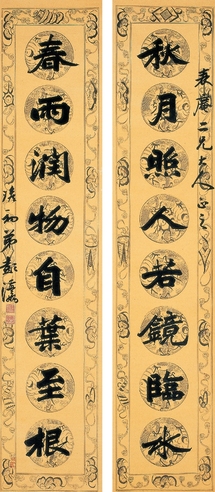 二兄大人正之
秋月照人若鏡臨水
春雨潤物自葉至根
初弟彭